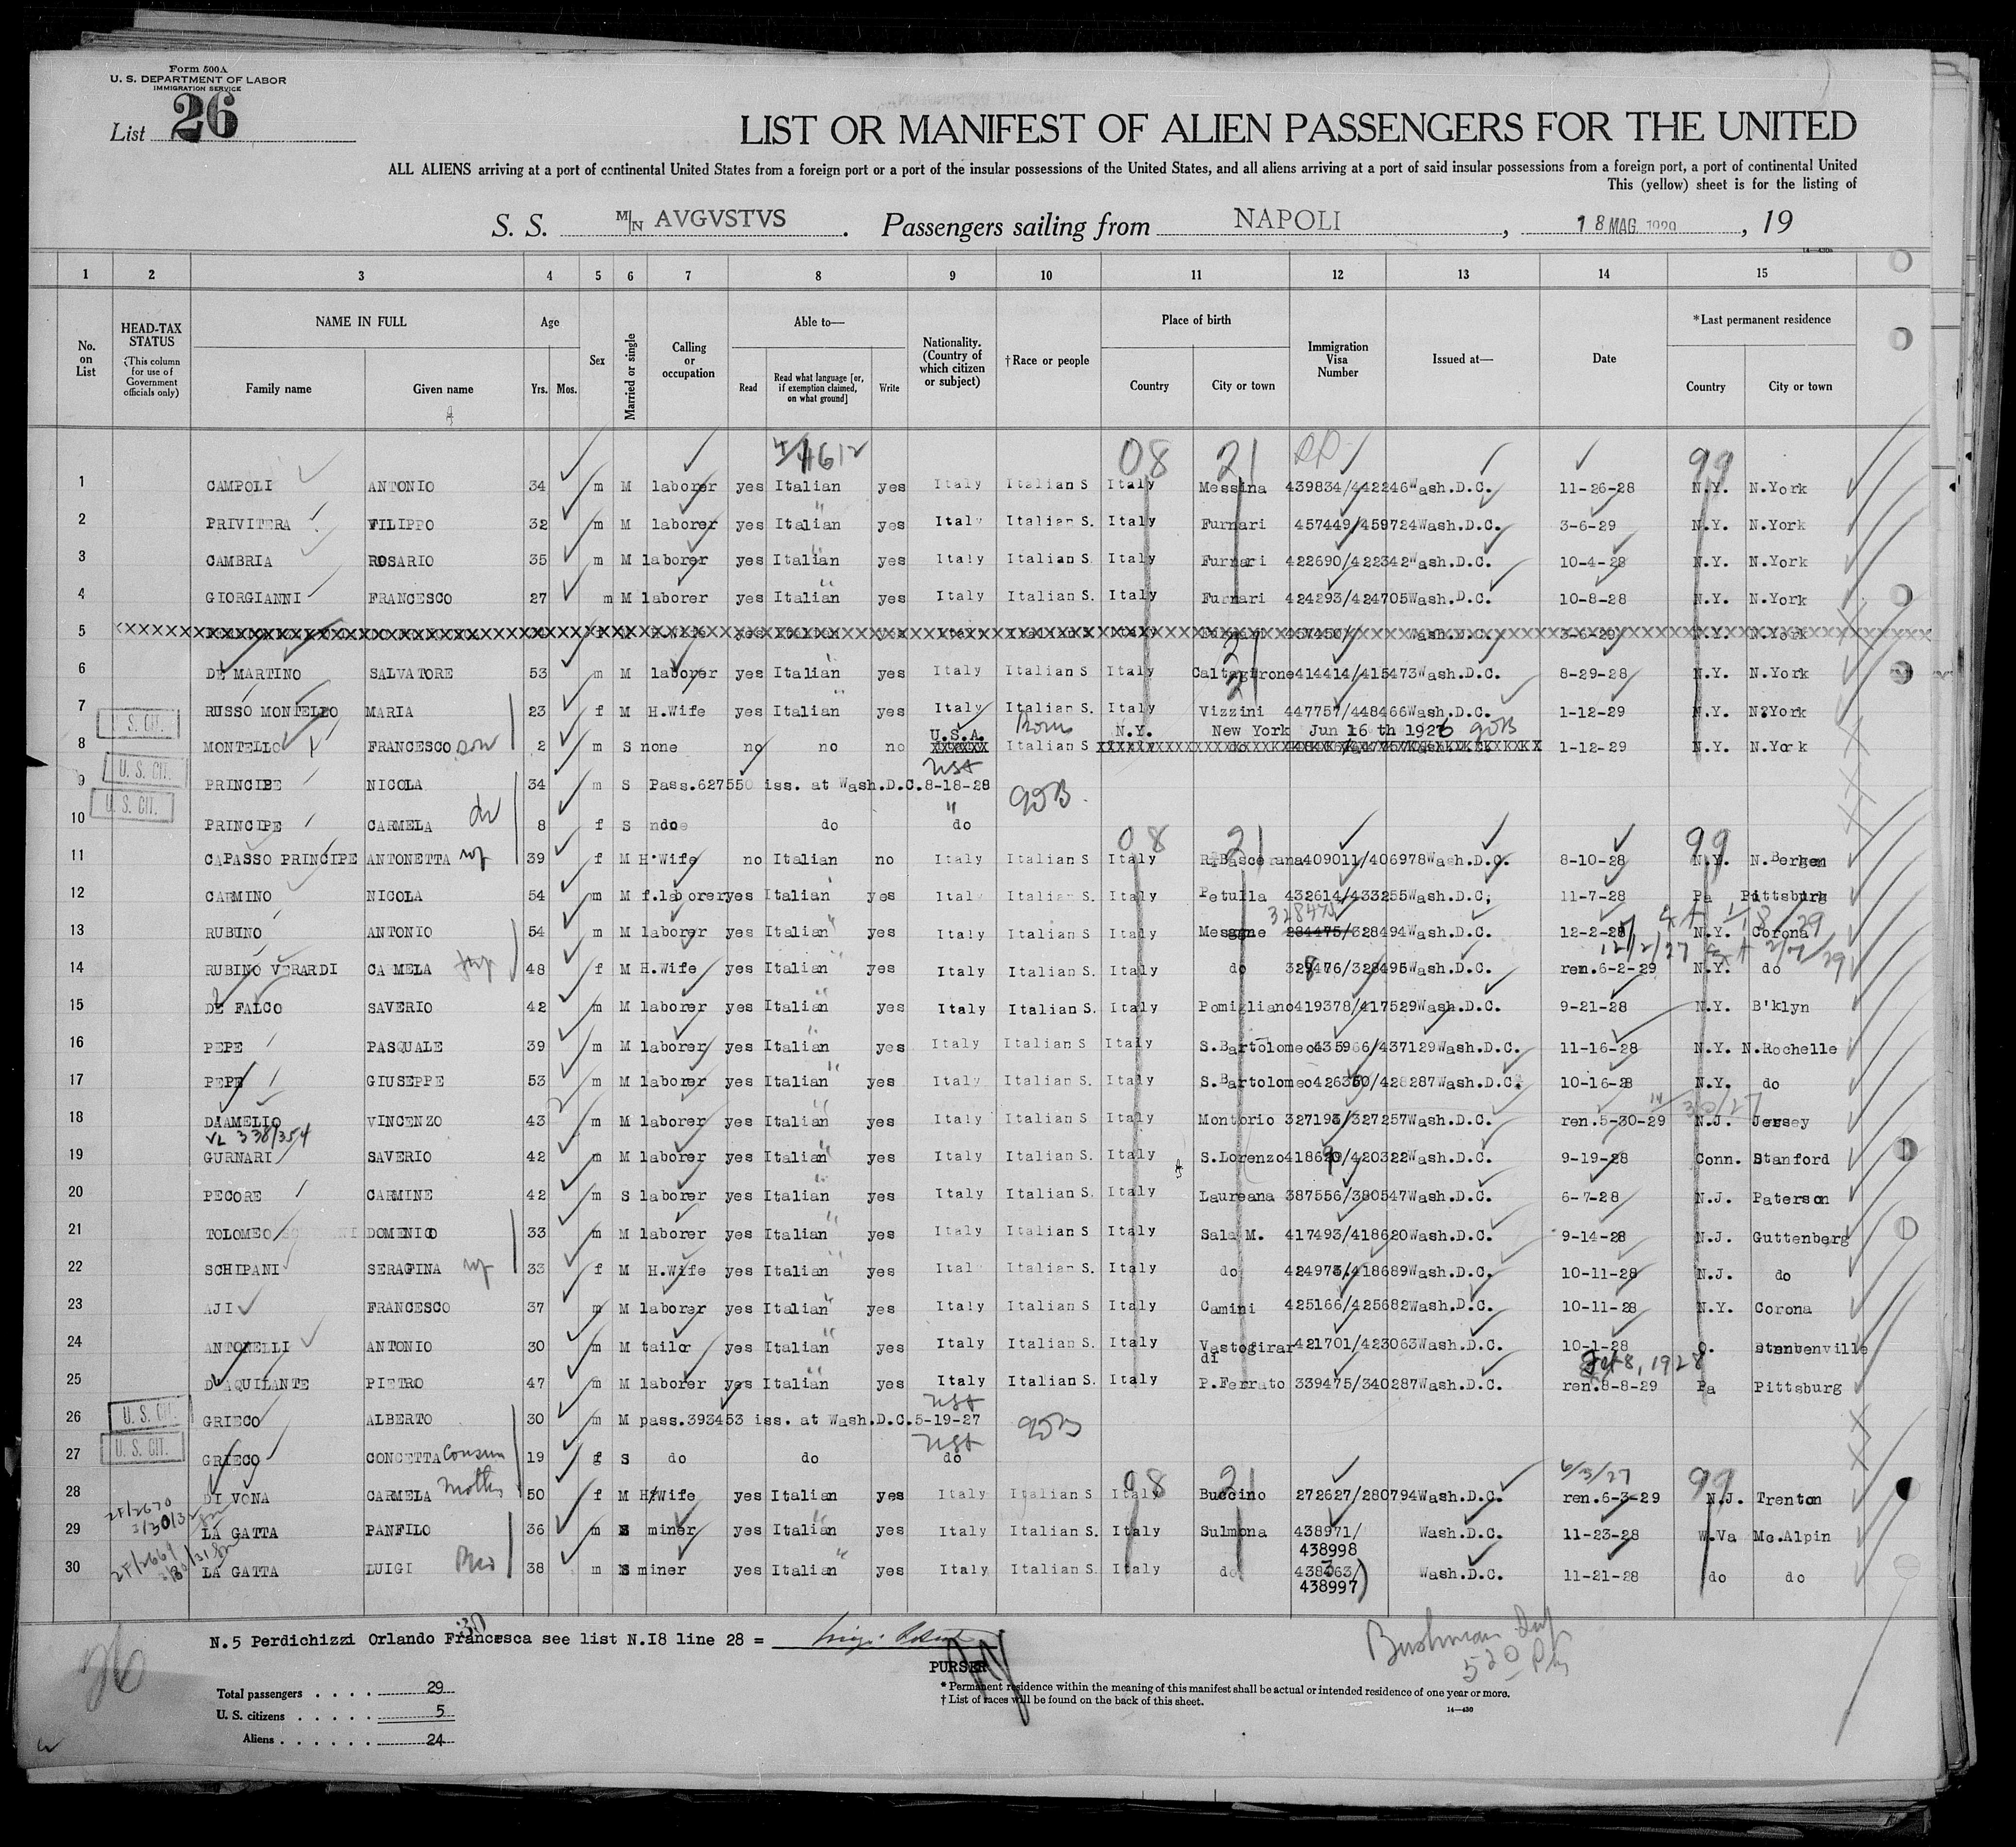 Form 500A
U. S. DEPARTMENT OF LABOR
IMMIGRATION SERVICE
List 26
LIST OR MANIFEST OF ALIEN PASSENGERS FOR THE UNITED
ALL ALIENS arriving at a port of continental United States from a foreign port or a port of the insular possessions of the United States, and all aliens arriving at a port of said insular possessions from a foreign port, a port of continental United
This (yellow) sheet is for the listing of
S. S. M/N AVGVSTVS . Passengers sailing from NAPOLI , 18 MAG 1929 , 19
14—430a
1 2 3 4 5 6 7 8 9 10 11 12 13 14 15
No. on List HEAD-TAX STATUS (This column for use of Government officials only) NAME IN FULL Family name Given name Age Yrs. Mos. Sex Married or single Calling or occupation Able to— Read Read what language [or, if exemption claimed, on what ground] Write Nationality. (Country of which citizen or subject) †Race or people Place of birth Country City or town Immigration Visa Number Issued at— Date *Last permanent residence Country City or town
08 21 99
1 CAMPOLI ANTONIO 34 m M laborer yes Italian yes Italy Italian S Italy Messina 439834/442246 Wash.D.C. 11-26-28 N.Y. N.York
2 PRIVITERA FILIPPO 32 m M laborer yes Italian yes Italy Italian S. Italy Furnari 457449/459724 Wash.D.C. 3-6-29 N.Y. N.York
3 CAMBRIA ROSARIO 35 m M laborer yes Italian yes Italy Italian S. Italy Furnari 422690/422342 Wash.D.C. 10-4-28 N.Y. N.York
4 GIORGIANNI FRANCESCO 27 m M laborer yes Italian yes Italy Italian S. Italy Furnari 424293/424705 Wash.D.C. 10-8-28 N.Y. N.York
5 Italy 457450/ Wash.D.C. 3-6-29 N.Y. N.York
6 DE MARTINO SALVATORE 53 m M laborer yes Italian yes Italy Italian S Italy Caltagirone 414414/415473 Wash.D.C. 8-29-28 N.Y. N.York
7 RUSSO MONTELLO MARIA 23 f M H.Wife yes Italian yes Italy Italian S. Italy Vizzini 447757/448466 Wash.D.C. 1-12-29 N.Y. N.York
U. S. CIT.
U.S.A. Born N.Y. New York Jun 16 th 1926
8 MONTELLO FRANCESCO son 2 m S none no no no Italian S do 1-12-29 N.Y. N.York
U. S. CIT. USA
9 PRINCIPE NICOLA 34 m S Pass.627550 iss. at Wash.D.C. 8-18-28
U. S. CIT.
10 PRINCIPE CARMELA 8 f S do do do
08 21 99
11 CAPASSO PRINCIPE ANTONETTA wf 39 f M H.Wife no Italian no Italy Italian S Italy 409011/406978 Wash.D.C. 8-10-28 N.Y. N.Bergen
12 CARMINO NICOLA 54 m M f.laborer yes Italian yes Italy Italian S. Italy Petulla 432614/433255 Wash.D.C. 11-7-28 Pa Pittsburg
13 RUBINO ANTONIO 54 m M laborer yes Italian yes Italy Italian S Italy Messgne 284475/328494 Wash.D.C. 12-2-28 N.Y. Corona
12/2/27
14 RUBINO VERARDI CARMELA 48 f M H.Wife yes Italian yes Italy Italian S. Italy do 328476/328495 Wash.D.C. ren.6-2-29 N.Y. do
15 DE FALCO SAVERIO 42 m M laborer yes Italian yes Italy Italian S. Italy Pomigliano 419378/417529 Wash.D.C. 9-21-28 N.Y. B'klyn
16 PEPE PASQUALE 39 m M laborer yes Italian yes Italy Italian S Italy S.Bartolomeo 435966/437129 Wash.D.C. 11-16-28 N.Y. N.Rochelle
17 PEPE GIUSEPPE 53 m M laborer yes Italian yes Italy Italian S Italy S.Bartolomeo 426360/428287 Wash.D.C. 10-16-28 N.Y. do
18 D'AMELIO VINCENZO 43 m M laborer yes Italian yes Italy Italian S Italy Montorio 327193/327257 Wash.D.C. ren.5-30-29 N.J. Jersey
VL 338/354
19 GURNARI SAVERIO 42 m M laborer yes Italian yes Italy Italian S Italy S.Lorenzo 418690/420322 Wash.D.C. 9-19-28 Conn. Stanford
20 PECORE CARMINE 42 m S laborer yes Italian yes Italy Italian S. Italy Laureana 387556/380547 Wash.D.C. 6-7-28 N.J. Paterson
21 TOLOMEO DOMENICO 33 m M laborer yes Italian yes Italy Italian S Italy Sala M. 417493/418620 Wash.D.C. 9-14-28 N.J. Guttenberg
22 SCHIPANI SERAFINA wf 33 f M H.Wife yes Italian yes Italy Italian S. Italy do 424973/418689 Wash.D.C. 10-11-28 N.J. do
23 AJI FRANCESCO 37 m M laborer yes Italian yes Italy Italian S Italy Camini 425166/425682 Wash.D.C. 10-11-28 N.Y. Corona
24 ANTONELLI ANTONIO 30 m M tailor yes Italian yes Italy Italian S Italy Vastogirardi 421701/423063 Wash.D.C. 10-1-28 O. Steubenville
8, 1928
25 D'AQUILANTE PIETRO 47 m M laborer yes Italian yes Italy Italian S. Italy P.Ferrato 339475/340287 Wash.D.C. ren.8-8-29 Pa Pittsburg
U. S. CIT. USA
26 GRIECO ALBERTO 30 m M pass.393453 iss. at Wash.D.C. 5-19-27
U. S. CIT. USA
27 GRIECO CONCETTA cousin 19 f S do do do
08 21 6/3/27 99
28 DI VONA CARMELA Mother 50 f M H.Wife yes Italian yes Italy Italian S Italy Buccino 272627/280794 Wash.D.C. ren.6-3-29 N.J. Trenton
29 LA GATTA PANFILO 36 m S miner yes Italian yes Italy Italian S. Italy Sulmona 438971/438998 Wash.D.C. 11-23-28 W.Va Mc.Alpin
30 LA GATTA LUIGI Bro 38 m S miner yes Italian yes Italy Italian S. Italy do 438063/438997 Wash.D.C. 11-21-28 do do
N.5 Perdichizzi Orlando Francesca see list N.18 line 28 =
PURSER
26
Total passengers . . . . 29
U. S. citizens . . . . . 5
Aliens . . . . . . 24
* Permanent residence within the meaning of this manifest shall be actual or intended residence of one year or more.
† List of races will be found on the back of this sheet.
14—430